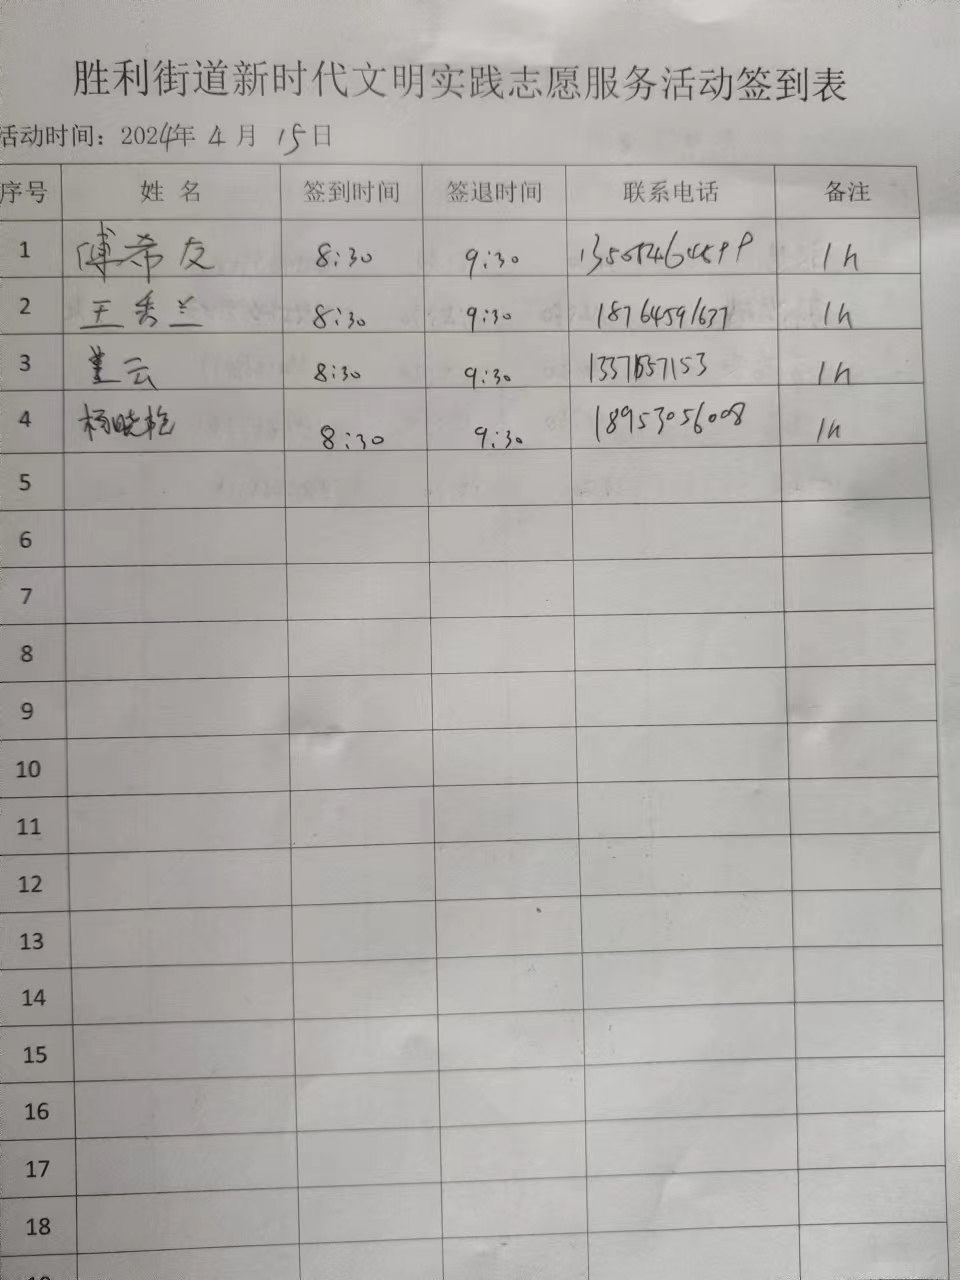 胜利街道新时代文明实践志愿服务活动签到表
活动时间：2024年 4 月 15日
序号 姓 名 签到时间 签退时间 联系电话 备注
1 傅希友 8:30 9:30 1h
2 王秀兰 8:30 9:30 18764591637 1h
3 云 8:30 9:30 1h
4 杨晓艳 8:30 9:30 18953056008 1h
5
6
7
8
9
10
11
12
13
14
15
16
17
18